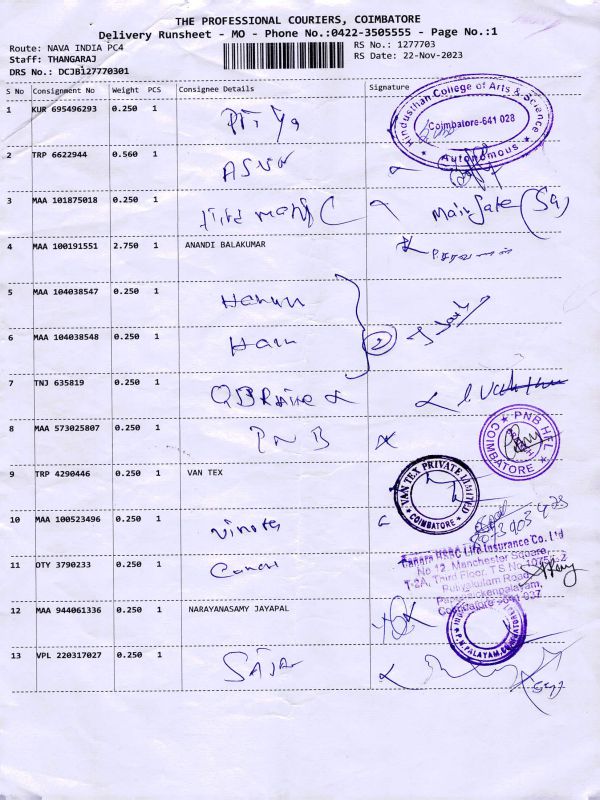 THE PROFESSIONAL COURIERS, COIMBATORE
Delivery Runsheet - MO - Phone No.:0422-3505555 - Page No.:1
Route: NAVA INDIA PC4
RS No.: 1277703
Staff: THANGARAJ
RS Date: 22-Nov-2023
DRS No.: DCJBi27770301
S No Consignment No Weight PCS Consignee Details Signature
1 KUR 695496293 0.250 1 Priya
Hindusthan College of Arts & Science
Coimbatore-641 028
Autonomous
2 TRP 6622944 0.560 1
3 MAA 101875018 0.250 1 Main Gate
4 MAA 100191551 2.750 1 ANANDI BALAKUMAR
5 MAA 104038547 0.250 1
6 MAA 104038548 0.250 1 2
7 TNJ 635819 0.250 1
8 MAA 573025807 0.250 1 PNB
PNB HFL
COIMBATORE
9 TRP 4290446 0.250 1 VAN TEX
VAN TEX PRIVATE LIMITED
COIMBATORE
10 MAA 100523496 0.250 1
Canara HSBC Life Insurance Co. Ltd
No 12, Manchester Square,
Puliyakulam Road,
11 OTY 3790233 0.250 1
12 MAA 944061336 0.250 1 NARAYANASAMY JAYAPAL
13 VPL 220317027 0.250 1